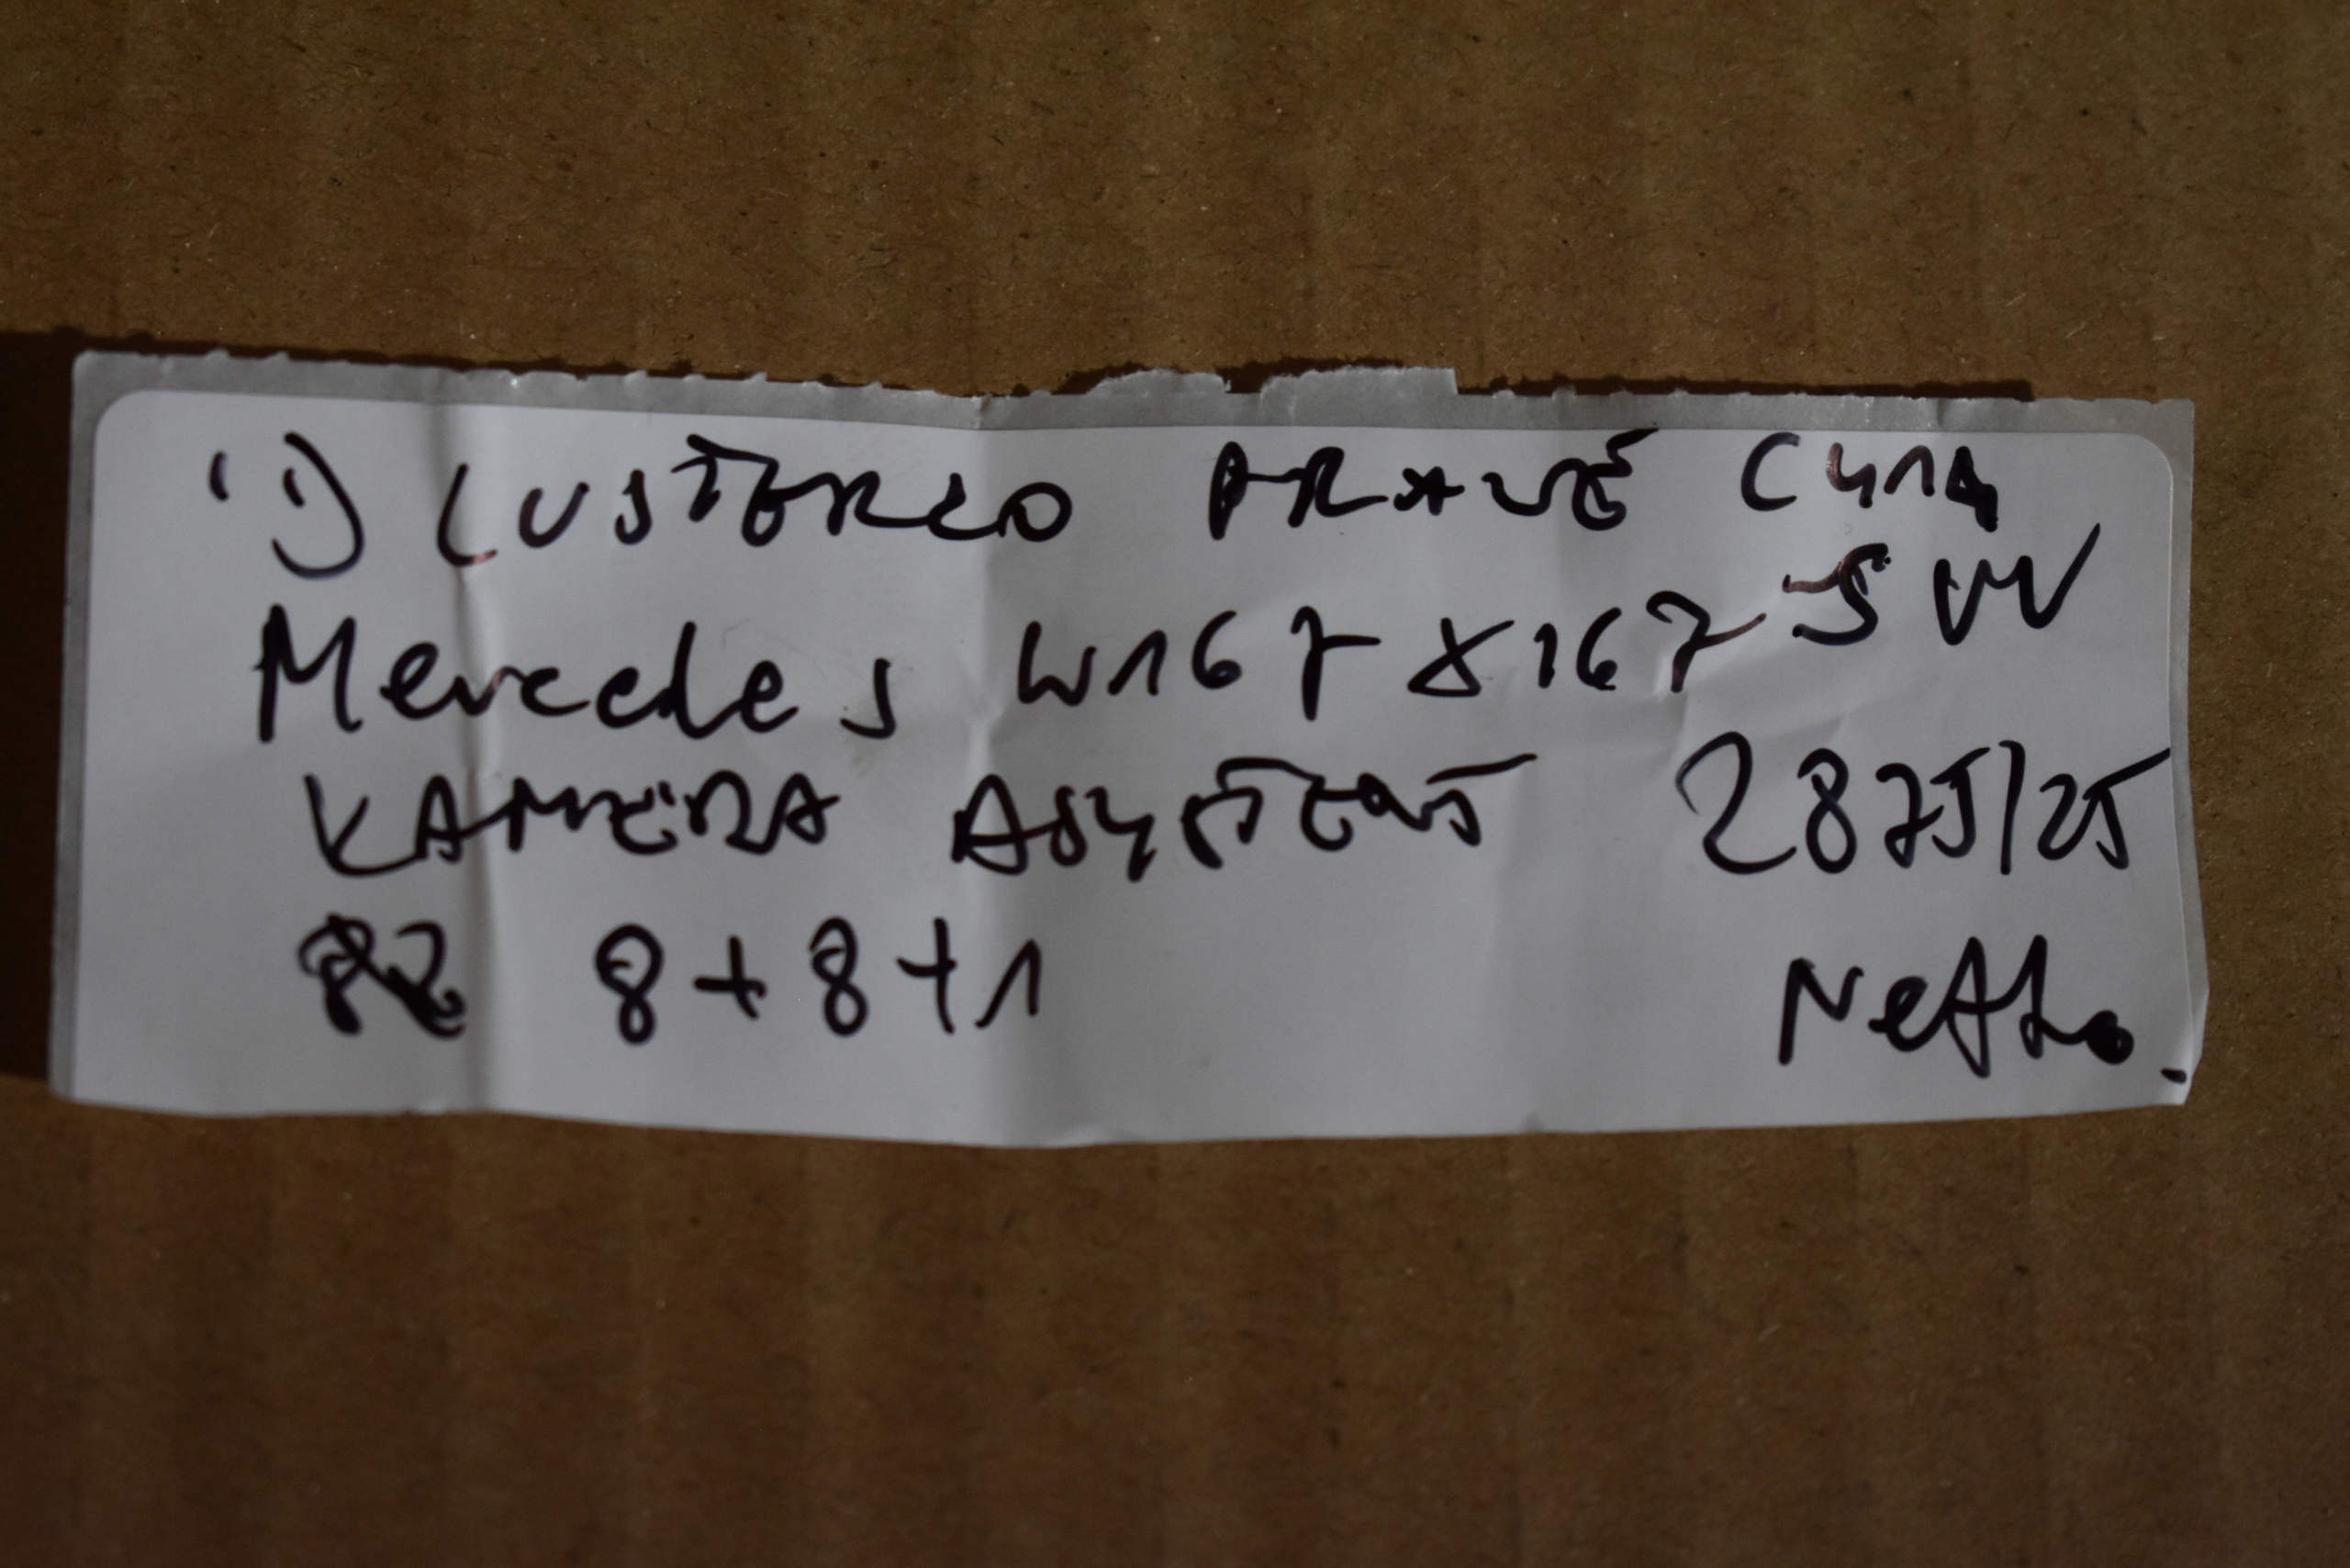 1) LUSTERKO PRAWE C41A
Mercedes W167 X167 SVV
KAMERA ASYSTENT 2875/25
8+8+1 Netto.